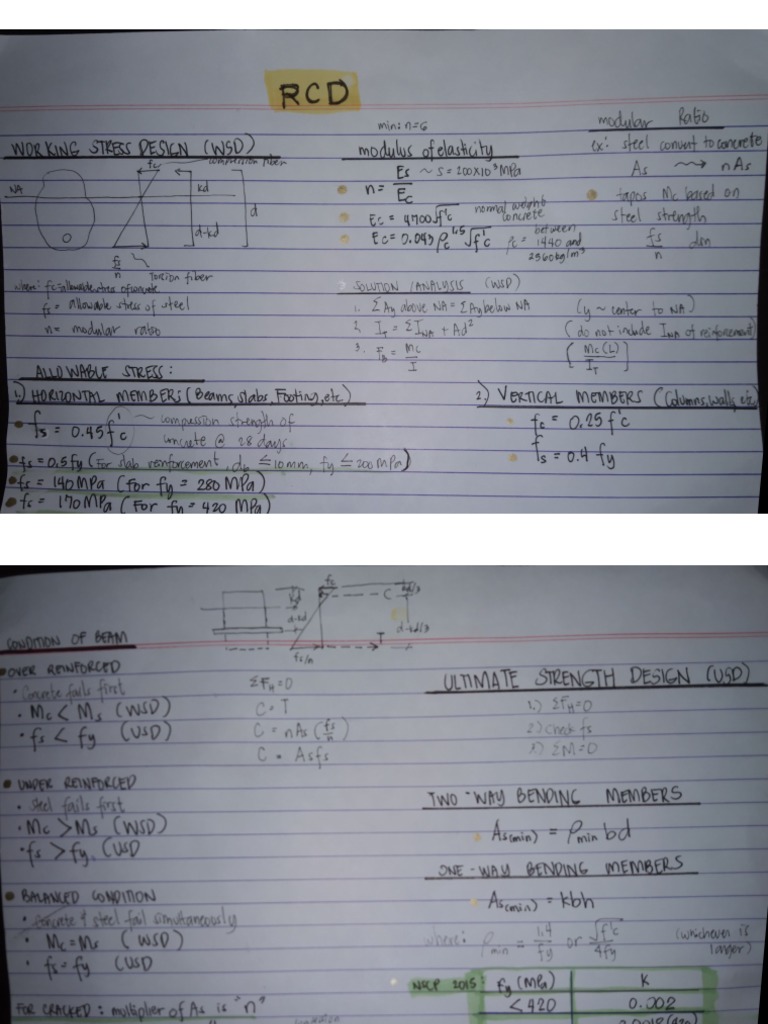 RCD
WORKING STRESS DESIGN (WSD)
fc compression fiber
NA
kd
d
d-kd
fs/n
Tension fiber
where: fc = allowable stress of concrete
fs = allowable stress of steel
n = modular ratio
min: n=6
modulus of elasticity
n = Es/Ec ~ s = 200x10³ MPa
Ec = 4700√f'c normal weight concrete
Ec = 0.043 ρc^1.5 √f'c ρc = between 1440 and 2560 kg/m³
modular Ratio
ex: steel convert to concrete
As → nAs
tapos Mc based on
steel strength
fs/n
SOLUTION / ANALYSIS (WSD)
1. ΣAy above NA = ΣAy below NA (y ~ center to NA)
2. IT = ΣINA + Ad² (do not include INA of reinforcement)
3. FB = Mc/I [Mc(L)/IT]
ALLOWABLE STRESS:
1.) HORIZONTAL MEMBERS (Beams, slabs, Footing, etc)
fs = 0.45 f'c ~ compression strength of
concrete @ 28 days
fs = 0.5fy (For slab reinforcement, ≤ 10 mm, fy ≤ 200 MPa)
fs = 140 MPa (For fy = 280 MPa)
fs = 170 MPa (For fy = 420 MPa)
2.) VERTICAL MEMBERS (Columns, walls, etc)
fc = 0.25 f'c
fs = 0.4 fy
fc
kd
d-kd
fs/n
C
T
kd/3
d-kd/3
CONDITION OF BEAM
OVER REINFORCED
• Concrete fails first
• Mc < Ms (WSD)
• fs < fy (USD)
ΣFH = 0
C = T
C = nAs (fs/n)
C = Asfs
UNDER REINFORCED
• Steel fails first
• Mc > Ms (WSD)
• fs > fy (USD
BALANCED CONDITION
• concrete & steel fail simultaneously
• Mc = Ms (WSD)
• fs = fy (USD
FOR CRACKED: multiplier of As is "n"
ULTIMATE STRENGTH DESIGN (USD)
1.) ΣFH=0
2) Check fs
3) ΣM=0
TWO-WAY BENDING MEMBERS
As(min) = ρmin bd
ONE-WAY BENDING MEMBERS
As(min) = kbh
where: ρmin = 1.4/fy or √f'c/4fy (whichever is larger)
NSCP 2015: fy (MPa) K
< 420 0.002